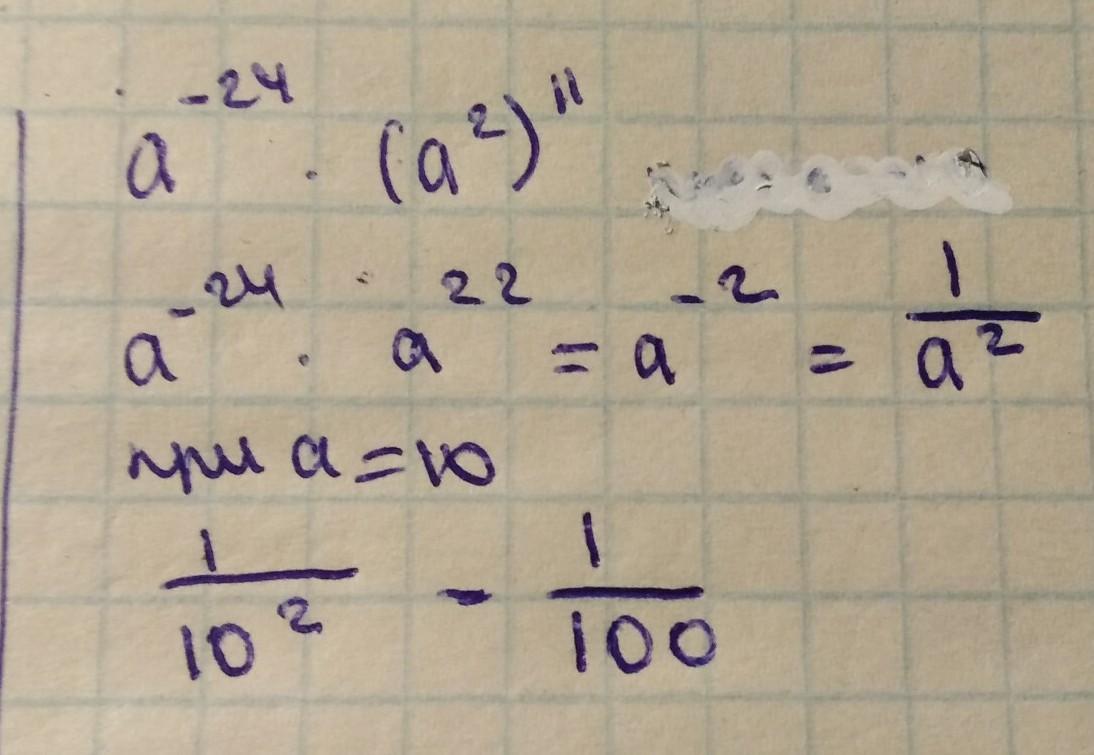 a⁻²⁴ · (a²)¹¹
a⁻²⁴ · a²² = a⁻² = 1/a²
при a = 10
1/10² - 1/100